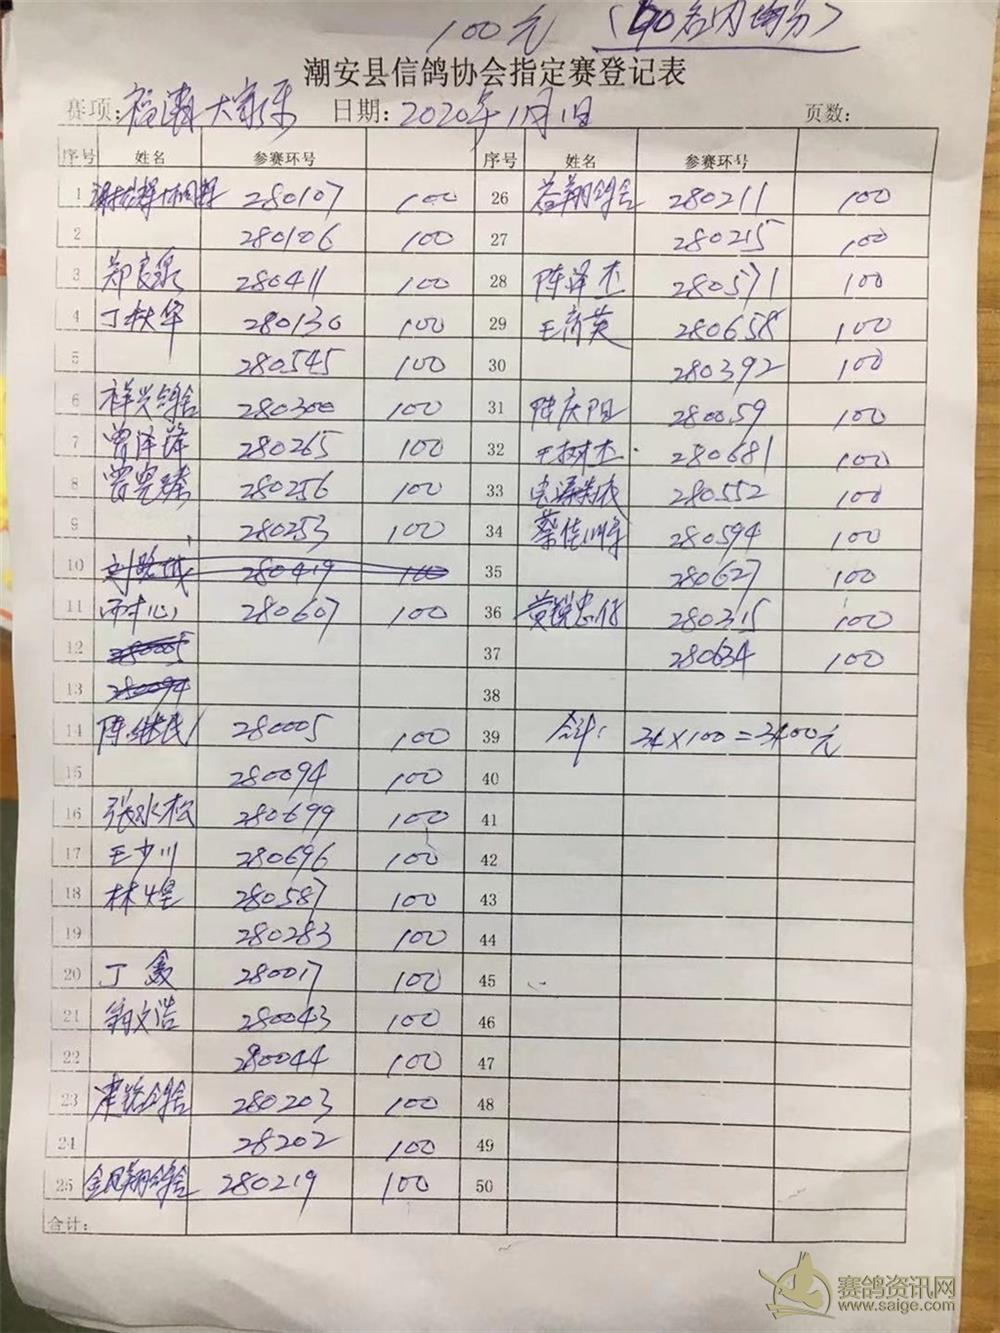 100元 (40名内均分)
潮安县信鸽协会指定赛登记表
赛项: 福清大家乐 日期: 2020年11月1日 页数:
序号 姓名 参赛环号 序号 姓名 参赛环号
1 280107 100 26 益翔鸽舍 280211 100
2 280106 100 27 280215 100
3 郑良泉 280411 100 28 陈泽杰 280571 100
4 丁秋华 280130 100 29 王育英 280658 100
5 280545 100 30 280392 100
6 祥兴鸽舍 280300 100 31 陈庆阳 280059 100
7 曾泽锋 280265 100 32 王树杰 280681 100
8 280256 100 33 280552 100
9 280253 100 34 280594 100
10 280419 100 35 280627 100
11 280607 100 36 280315 100
12 280005 37 280634 100
13 280094 38
14 陈继民 280005 100 39 合计: 34×100=3400元
15 280094 100 40
16 张水松 280699 100 41
17 王少川 280696 100 42
18 林煌 280587 100 43
19 280283 100 44
20 丁鑫 280017 100 45
21 翁文浩 280043 100 46
22 280044 100 47
23 280203 100 48
24 28202 100 49
25 金凤翔鸽舍 280219 100 50
合计:
赛鸽资讯网
www.saige.com